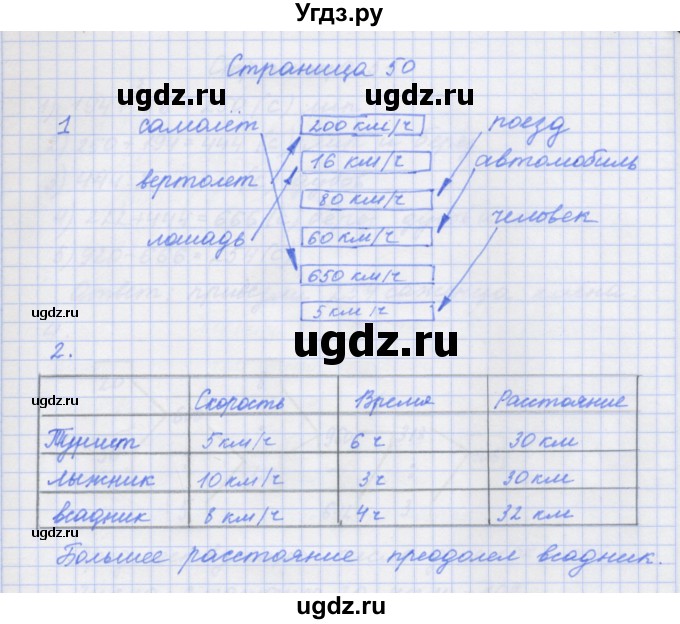 Угдз.ру
Страница 50
ugdz.ru ugdz.ru
1 самолёт 200 км/ч поезд
16 км/ч автомобиль
вертолет 80 км/ч
человек
лошадь 60 км/ч
ugdz.ru 650 км/ч ugdz.ru
5 км/ч
ugdz.ru
2.
Скорость Время Расстояние
ugdz.ru
Турист 5 км/ч 6 ч 30 км
лыжник 10 км/ч 3 ч 30 км
всадник 8 км/ч 4 ч 32 км
ugdz.ru
Большее расстояние преодолел всадник.
ugdz.ru